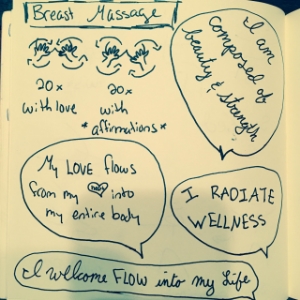 Breast Massage
20x 20x
with love with
*affirmations*
I am
composed of
beauty & strength
My LOVE flows
from my heart into
my entire body
I RADIATE
WELLNESS
I welcome FLOW into my Life